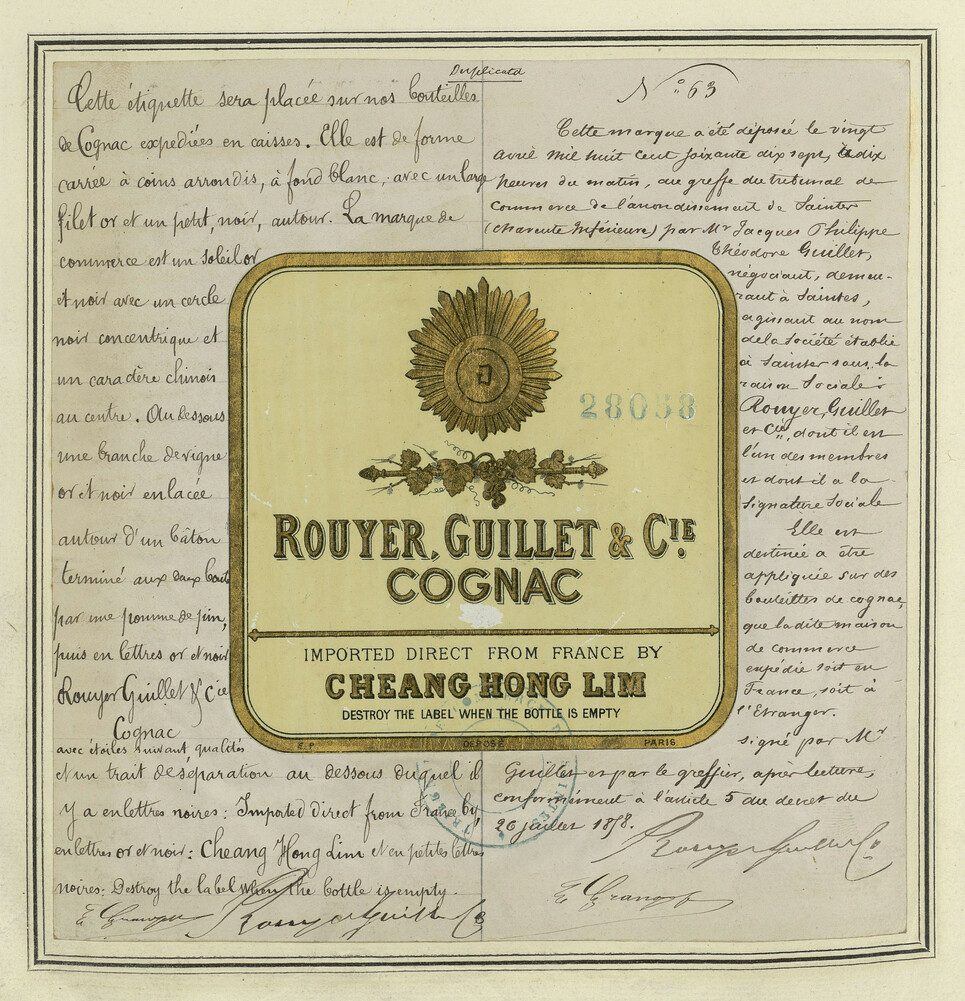 Duplicata
Cette étiquette sera placée sur nos bouteilles
de Cognac expédiées en caisses. Elle est de forme
carrée à coins arrondis, à fond blanc, avec un large
filet or et un petit, noir, autour. La marque de
commerce est un Soleil or
et noir avec un cercle
noir concentrique et
un caractère chinois
au centre. Au dessous
une branche de vigne
or et noir enlacée
autour d'un bâton
terminé aux deux bouts
par une pomme de pin,
puis en lettres or et noir
Rouyer Guillet & Cie
Cognac
avec étoiles suivant qualités
et un trait de séparation au dessous duquel il
y a en lettres noires: Imported direct from France by,
en lettres or et noir: Cheang Hong Lim et en petites lettres
noires: Destroy the label when the bottle is empty.
Rouyer Guillet Co
No 63
Cette marque a été déposée le vingt
avril mil huit cent soixante dix sept, à dix
heures du matin, au greffe du tribunal de
commerce de l'arrondissement de Saintes
(Charente Inférieure) par Mr Jacques Philippe
Théodore Guillet,
négociant, demeu-
rant à Saintes,
agissant au nom
de la Société établie
à Saintes sous la
raison Sociale:
Rouyer, Guillet
et Cie, dont il est
l'un des membres
et dont il a la
signature Sociale
Elle est
destinée a être
appliquée sur des
bouteilles de cognac,
que la dite maison
de commerce
expédie soit en
France, soit à
l'Etranger.
signé par Mr
Guillet et par le greffier, après lecture,
conformément à l'article 5 du décret du
26 juillet 1858.
Rouyer Guillet Co
28058
ROUYER, GUILLET & CIE.
COGNAC
IMPORTED DIRECT FROM FRANCE BY
CHEANG HONG LIM
DESTROY THE LABEL WHEN THE BOTTLE IS EMPTY
E.P. DÉPOSÉ PARIS